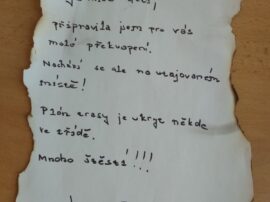 připravila jsem pro vás
malé překvapení.
Nachází se ale na utajovaném
místě!
Plán trasy je ukryt někde
ve třídě.
Mnoho štěstí!!!